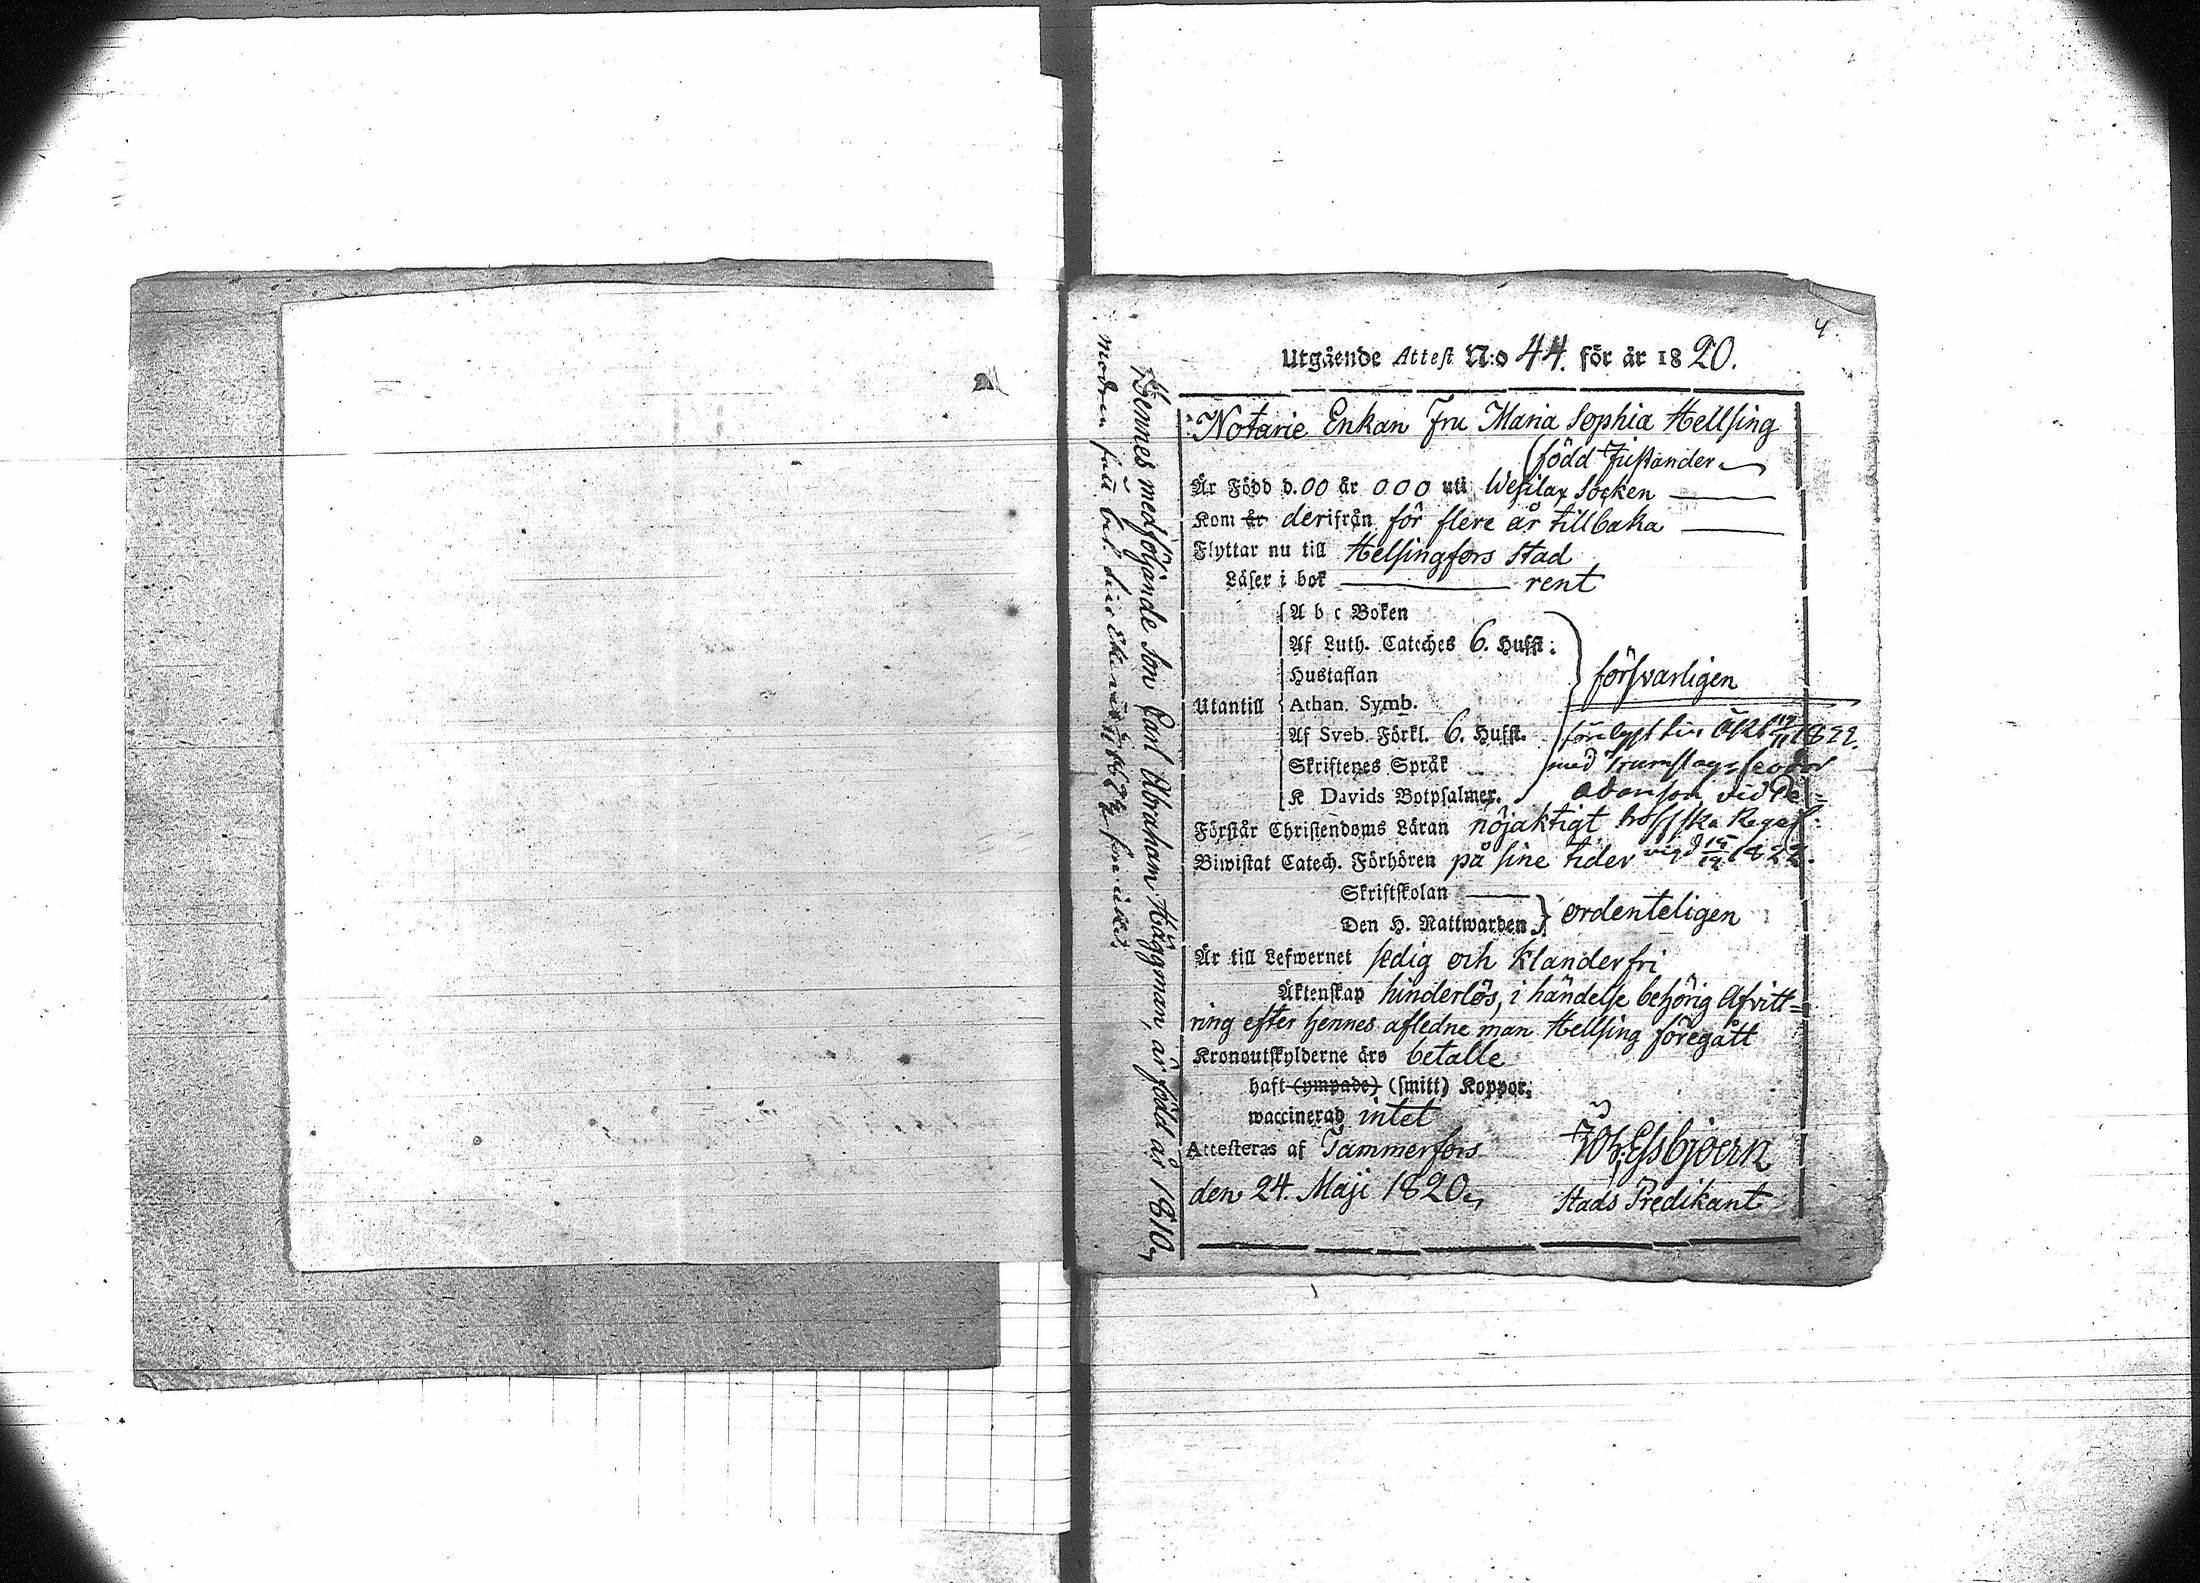 4.
Utgående Attest N:o 44. för år 1820.
Notarie Enkan Fru Maria Sophia Hellsing
(född Jusslander
Är Född d. 00 år 000 uti Wesilax Socken
Kom år derifrån för flere år tillbaka
Flyttar nu till Helsingfors Stad
Läser i bok rent
A b c Boken
Af Luth. Cateches 6. Hufst:
Hustaflan
försvarligen
Utantill Athan. Symb.
Af Sveb. Förkl. 6. Hufst.
1822.
Skriftenes Språk
med
K Davids Botpsalmer.
vid
Förstår Christendoms Läran nöjaktigt
Biwistat Catech. Förhören på sine tider
vigd 1822.
Skriftskolan
Den H. Nattwarden ordenteligen
Är till Lefwernet sedig och klanderfri
Äktenskap hinderlös, i händelse behörig Afvitt=
ring efter hennes afledne man Hellsing föregått
Kronoutskylderne äro betalte
haft (ympade) (smitt) Koppor.
waccinerad intet
Attesteras af Tammerfors
Joh: Essbjoern
den 24. Maji 1820.
Stads Predikant
Hennes medföljande Son Carl Abraham Häggman, är född år 1810.
Modren fått bet.